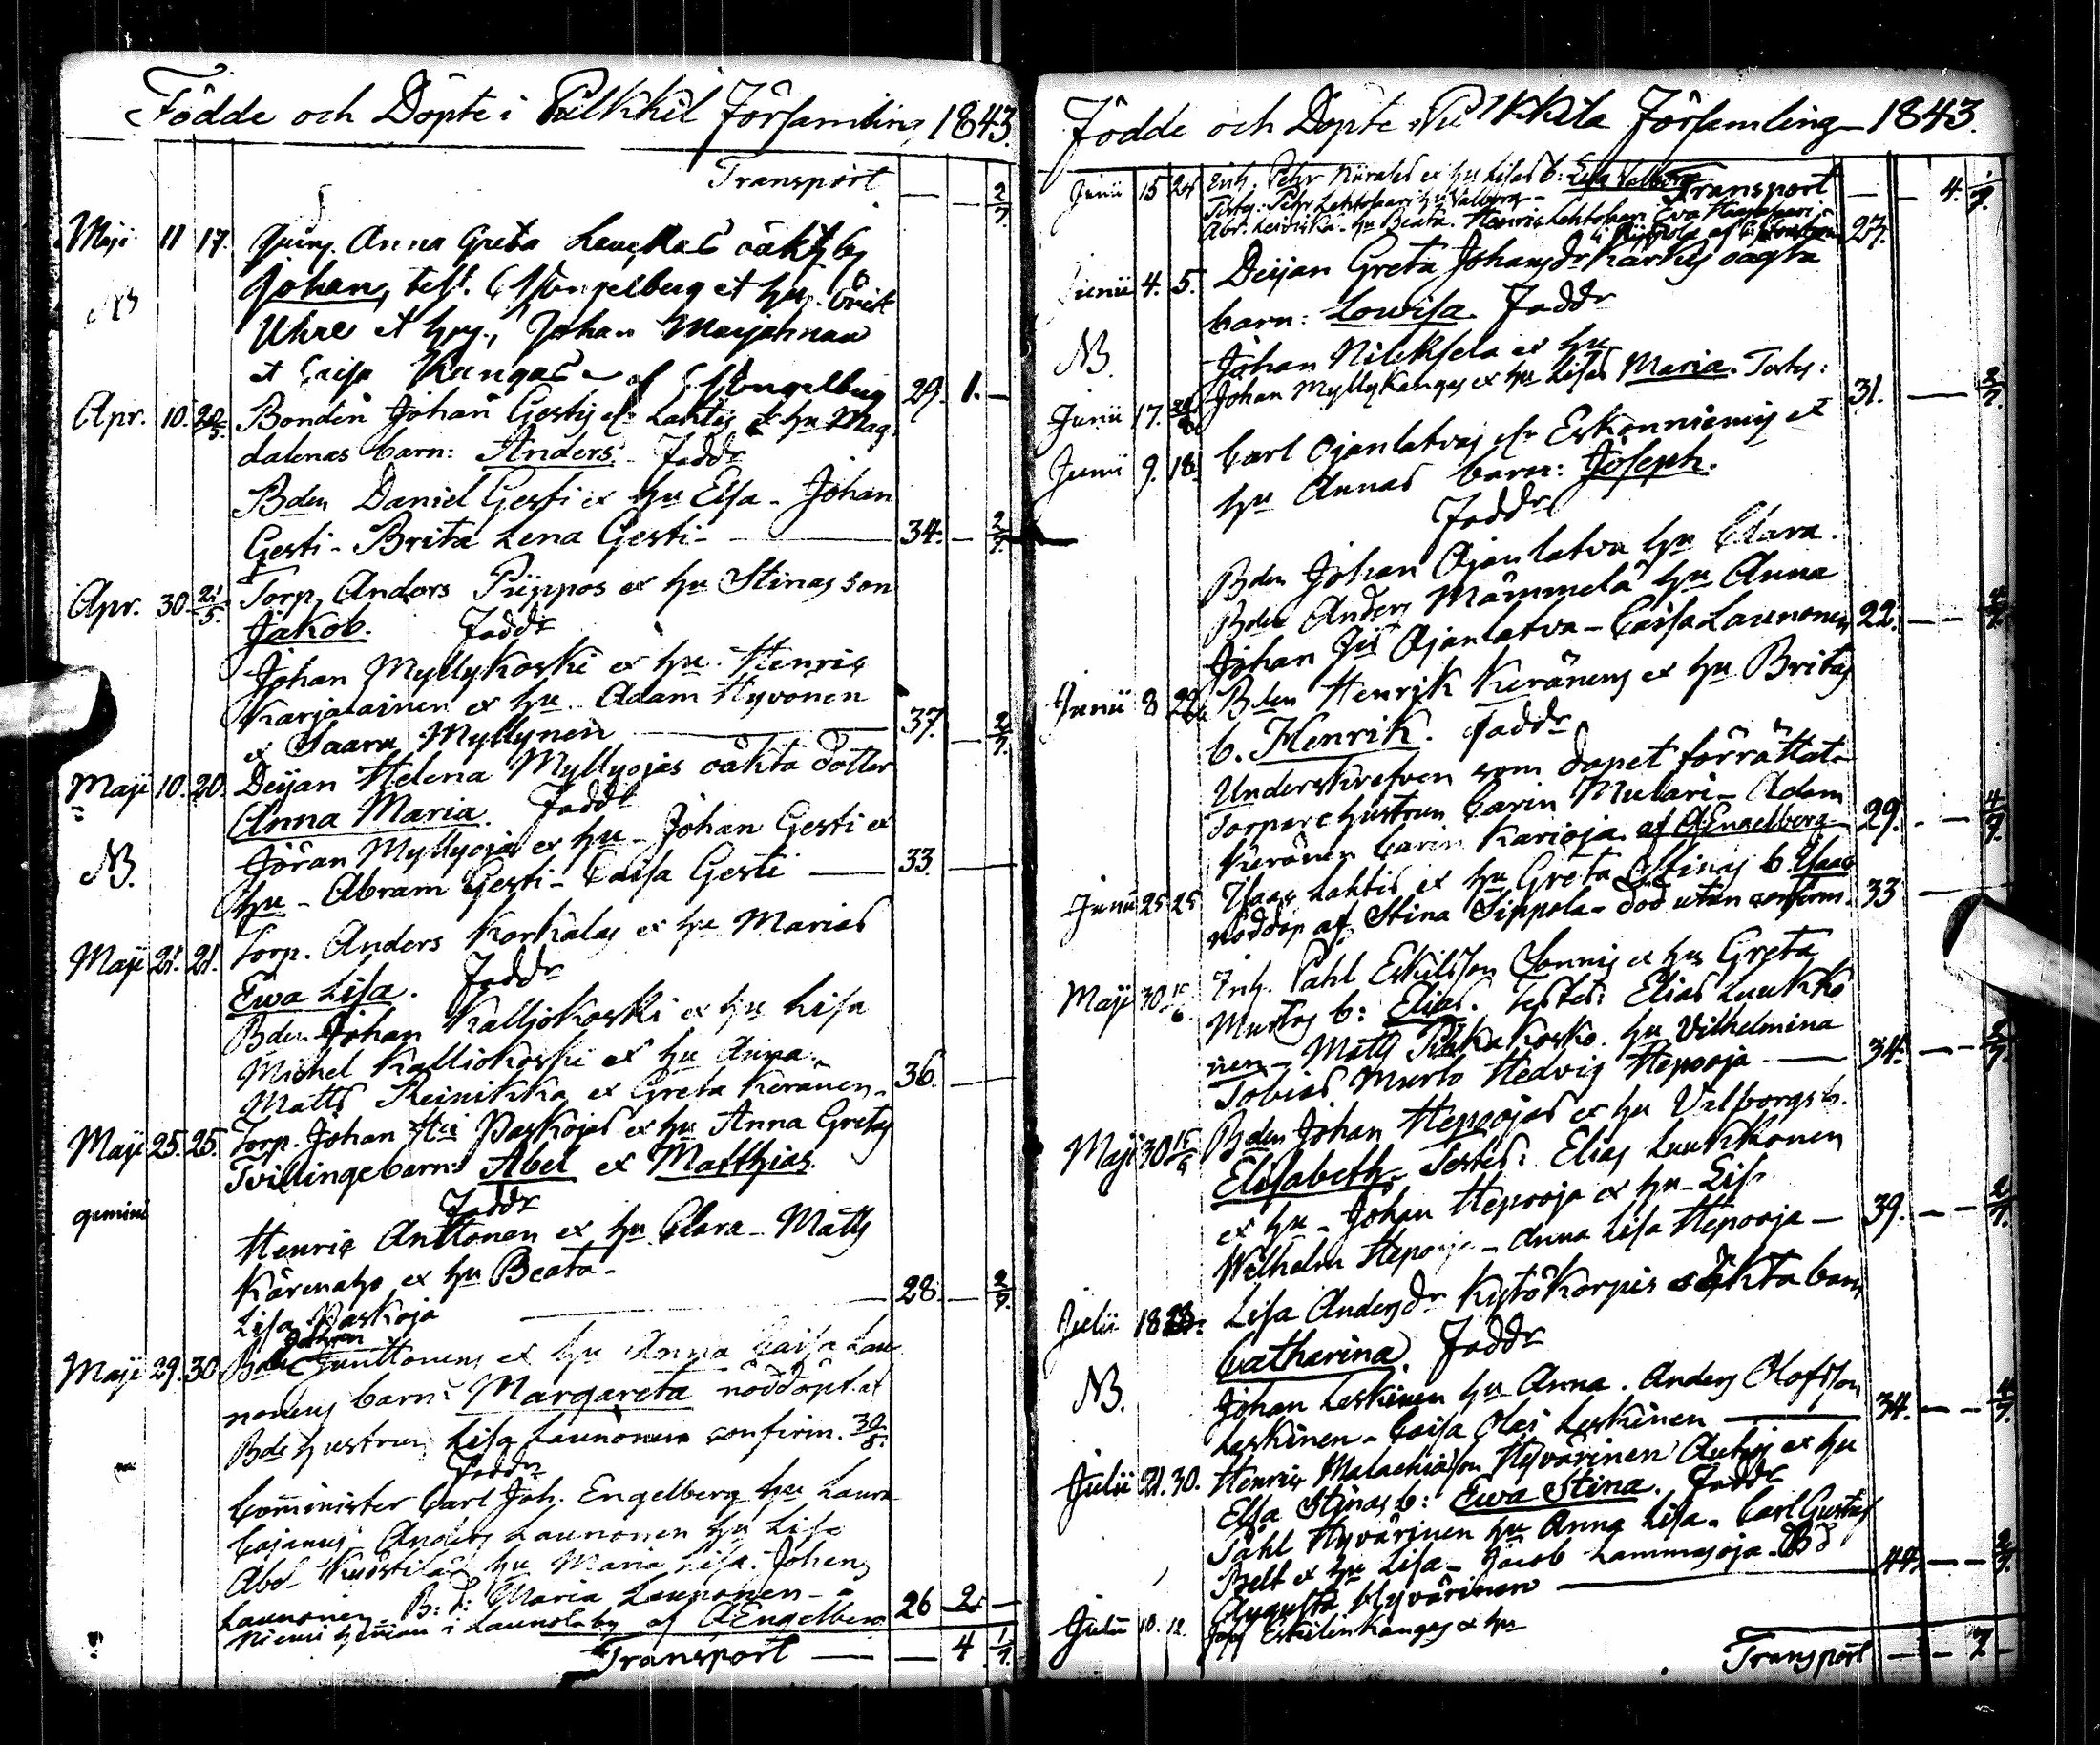 Födde och Döpte i Pulkkil Församling 1843.
Transport — 2/9
Maji 11 17. Anna Greta oäkta b
NB Johan, test. C J Engelberg et hu. Erik
Uhre et hu, Johan Marjanaa
et Caisa Kangas — af C J Engelberg 29. 1. —
Apr. 10. 20/5. Bonden Johan Gestis fr Lahtis ex hu Mag-
dalenas barn: Anders. Faddr
Bden Daniel Gesti ex hu Elsa - Johan
Gesti - Brita Lena Gesti - 34. — 2/9.
Apr. 30 21/5. Torp. Anders Piippos ex hu Stinas son
Jakob. Faddr
Johan Myllykoski ex hu. Henric
Karjalainen ex hu. Adam Hyvönen
ex Saara Myllynen 37. — 2/9.
Maji 10. 20. Deijan Helena Myllyojas oäkta dotter
Anna Maria. Faddr
NB. Jöran Myllyojas ex hu - Johan Gesti ex
hu - Abram Gesti - Caisa Gesti — 33. —
Maji 21. 21. Torp. Anders Korkalas ex hu Marias
Ewa Lisa. Faddr
Bden Johan Kalliokoski ex hu Lisa
Michel Kalliokoski ex hu Anna.
Matts Reinikka ex Greta Keränen - 36. —
Maji 25. 25. Torp. Johan Paskojas ex hu Anna Gretas
Tvillingebarn: Abel ex Matthias.
gemini Faddr
Henric Anttonen ex hu Clara - Matts
Kärenaho ex hu Beata -
Lisa Paskoja 28. — 2/9.
Johan
Maji 29. 30 Bden Junttonens ex hu Anna Caisa Lau-
nonens barn: Margareta nöddöpt af
Bde hustrun Lisa Launonen confirm. 30/5.
Faddr
Comminister Carl Joh. Engelberg hu Laura
Cajanus - Anders Launonen hu Lisa
Abr. hu Maria Lisa. Johan
Launonen - B: d: Maria Launonen - 26 2. —
Niemi hemman i Launola by af CJEngelberg
Transport — — 4 1/9.
Födde och Döpte i Pulkkila Församling 1843.
Junii 15 24 Inh. Petr ex hu Lisas b: Lisa Valborg Transport — — 4. 1/9.
Testes. Petr Lehtosaari hu Valborg -
Abr. Leiviskä - hu Beata. Henric Lehtosaari Eva 27.
Junii 4. 5. Deijan Greta Johansdr Karhus oägta
barn: Lowisa. Faddr
NB. Johan Nilekselä ex hu
Junii 17. Johan Myllykangas ex hu Lisas Maria. Testes: 31. — 2/9.
Junii 9. 18. Carl Ojanlatvas fr Eskonniemis ex
hu Annas barn: Joseph.
Faddr
Bden Johan Ojanlatva hu Clara.
Bden Anders Mämmelä hu Anna
Johan Ojanlatva - Caisa Launonen 22. — —
Junii 8 Bden Henrik Keränens ex hu Britas
b. Henrik. Faddr
Underskrefven som dopet förrättat -
Torpare hustrun Carin Mulari - Adam
Keränen Carin Karioja af CJEngelberg 29. — 4/9.
Junii 25 25 Isaac Lahtis ex hu Greta Stinas b. Isaac
nöddop af Stina Sippola - död utan confirm. 33 —
Maji 30 15/6. Inh. Pahl Eskilsson ex hu Greta
Murtos b: Elias. Testes: Elias Luukko
nen - Matts hu Vilhelmina
Tobias Murto Hedvig Hepooja — 34. — 2/9.
Maji 30 15/6 Bden Johan Hepoojas ex hu Valborgs b.
Elisabeth. Testes: Elias Luukkonen
ex hu - Johan Hepooja ex hu Lis
Wilhelm Hepooja - Anna Lisa Hepooja — 39. — 2/9.
Julii 18 23. Lisa Andersdr Kytökorpis oäkta barn
Catharina. Faddr
NB. Johan Leskinen hu Anna. Anders Olofsson
Leskinen - Caisa Olai Leskinen — 34. — 4/9.
Julii 21. 30. Henric Malachiasson Hyvärinen ex hu
Elsa Stinas b: Ewa Stina. Faddr
Pahl Hyvärinen hu Anna Lisa - Carl Gustaf
Belt ex hu Lisa - Jacob Lammasoja - Bd
Augusta Hyvärinen — 44. — 2/9.
Julii 10. 12.
Transport — — 7 —